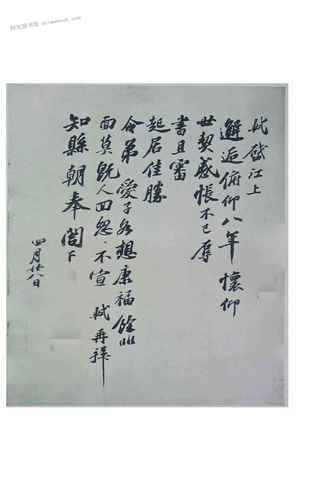 軾啓江上
邂逅俯仰八年懷仰
世契感悵不已辱
書且審
起居佳勝
令弟愛子各想康福餘非
面莫既人回怱怱不宣軾再拜
知縣朝奉閣下
四月廿八日